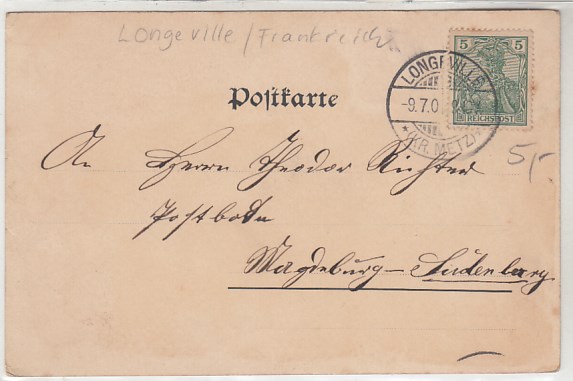 Longeville / Frankreich
5 5
REICHSPOST
LONGEVILLE
-9.7.0
* (KR. METZ)
Postkarte
5,-
An Herrn Theodor Richter
Postboten
Magdeburg-Sudenburg